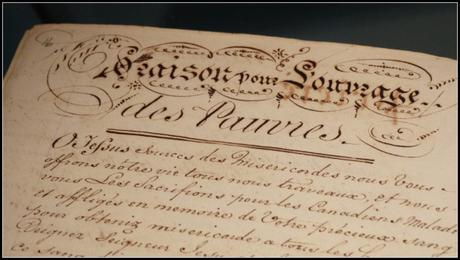 Oraison pour Louvrage
des Pauvres.
O Jesus Sources des Misericordes nous vous
offrons notre vie tous nous travaux, et nous
vous Les Sacrifions pour les Canadiens Malade
et affligés en memoire de Votre précieux sang
pour obteniz misericorde a tous les
Deignez Seigneur Jesu
ce sang